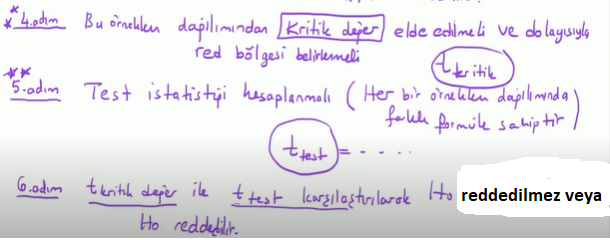 ** 4.adım Bu örneklem dağılımından kritik değer elde edilmeli ve dolayısıyla
red bölgesi belirlemeli
t kritik
** 5.adım Test istatistiği hesaplanmalı (Her bir örneklem dağılımında
farklı formüle sahiptir)
t test = - - - -
6.adım t kritik değer ile t test karşılaştırılarak Ho reddedilmez veya
Ho. reddedilir.